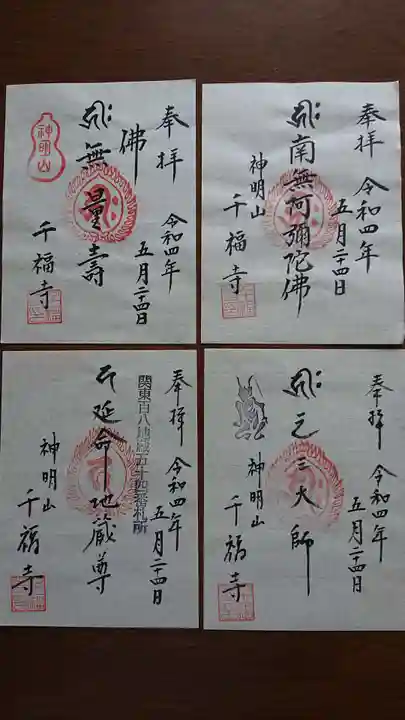 奉拝
令和四年
五月二十四日
佛
無量壽
神明山
千福寺
奉拝
令和四年
五月二十四日
南無阿彌陀佛
神明山
千福寺
奉拝
令和四年
五月二十四日
関東百八地蔵五十四番札所
延命地蔵尊
神明山
千福寺
奉拝
令和四年
五月二十四日
元三大師
神明山
千福寺